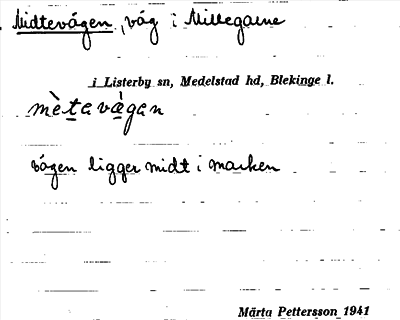 Midtevägen, väg i Millegarne
i Listerby sn, Medelstad hd, Blekinge l.
mètavägan
vägen ligger midt i marken
Märta Pettersson 1941